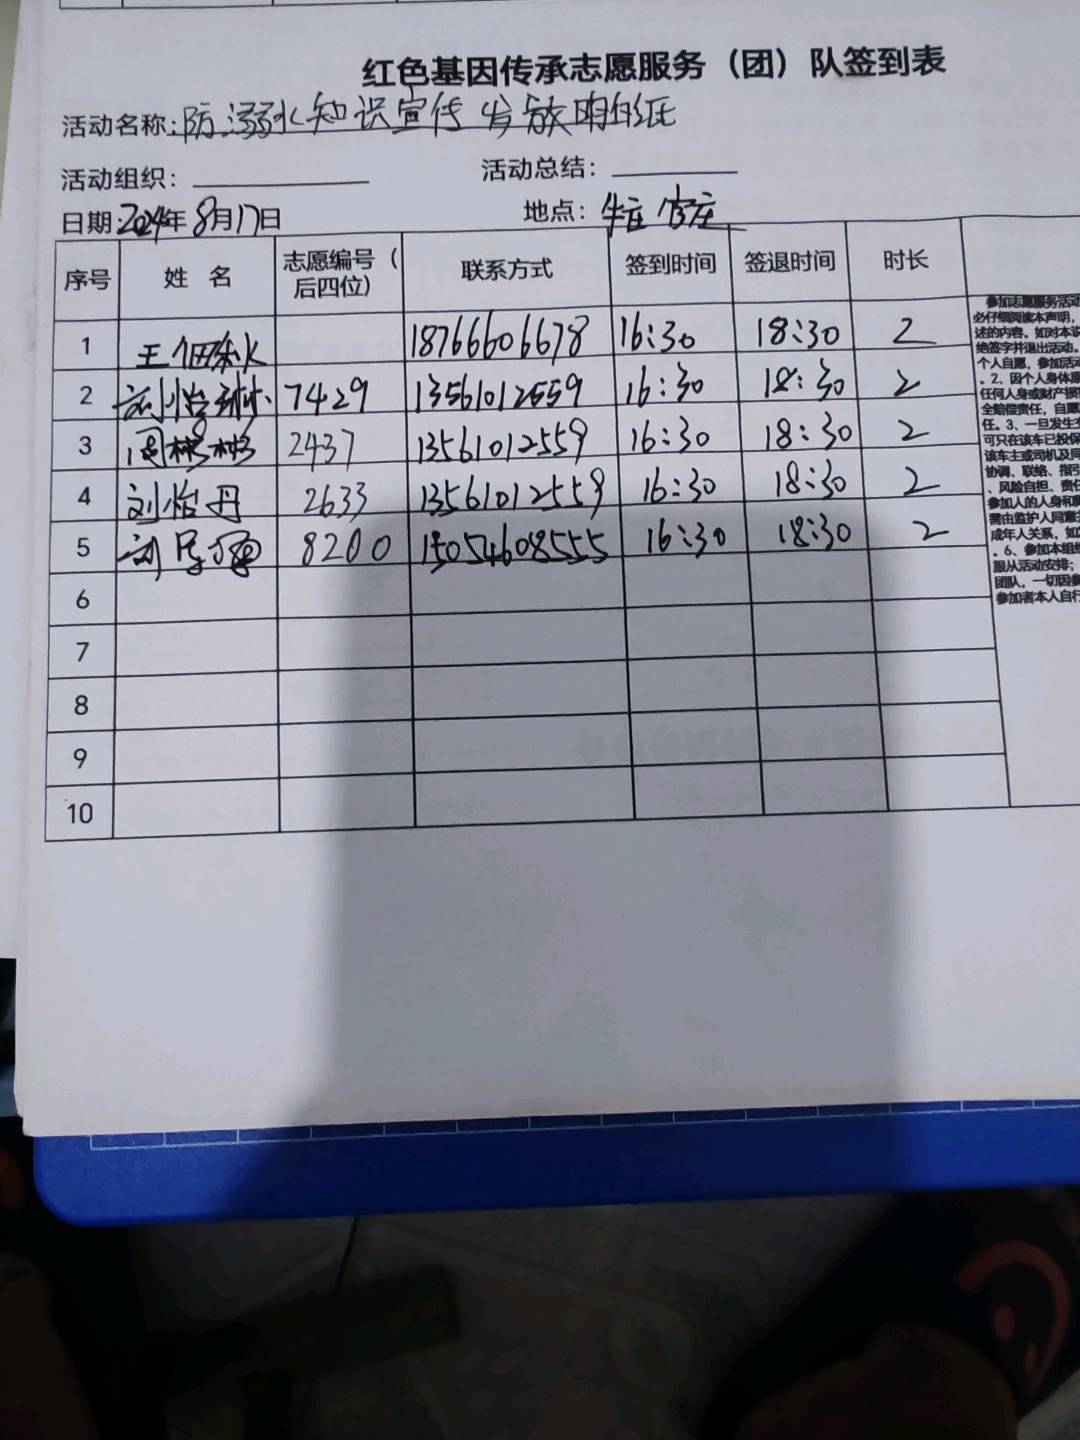 红色基因传承志愿服务（团）队签到表
活动名称：防溺水知识宣传 发放明白纸
活动组织： 活动总结：
日期：2024年8月17日 地点：牛庄
序号 姓 名 志愿编号（后四位） 联系方式 签到时间 签退时间 时长
1 王 18766606678 16:30 18:30 2
2 刘怡琳 7429 13561012559 16:30 18:30 2
3 周 2437 13561012559 16:30 18:30 2
4 刘怡丹 2633 13561012559 16:30 18:30 2
5 刘 8200 15054608555 16:30 18:30 2
6
7
8
9
10
参加志愿服务活动
必仔细阅读本声明，
述的内容。如对本说
绝签字并退出活动。
个人自愿，参加活动
。2、因个人身体原
任何人身或财产损
全赔偿责任，自愿
任。3、一旦发生交
可只在该车已投保
该车主或司机及同
协调、联络、指引
、风险自担、责任
参加人的人身和财
需由监护人同意
成年人关系，如
。6、参加本组织
服从活动安排；
团队，一切因参
参加者本人自行